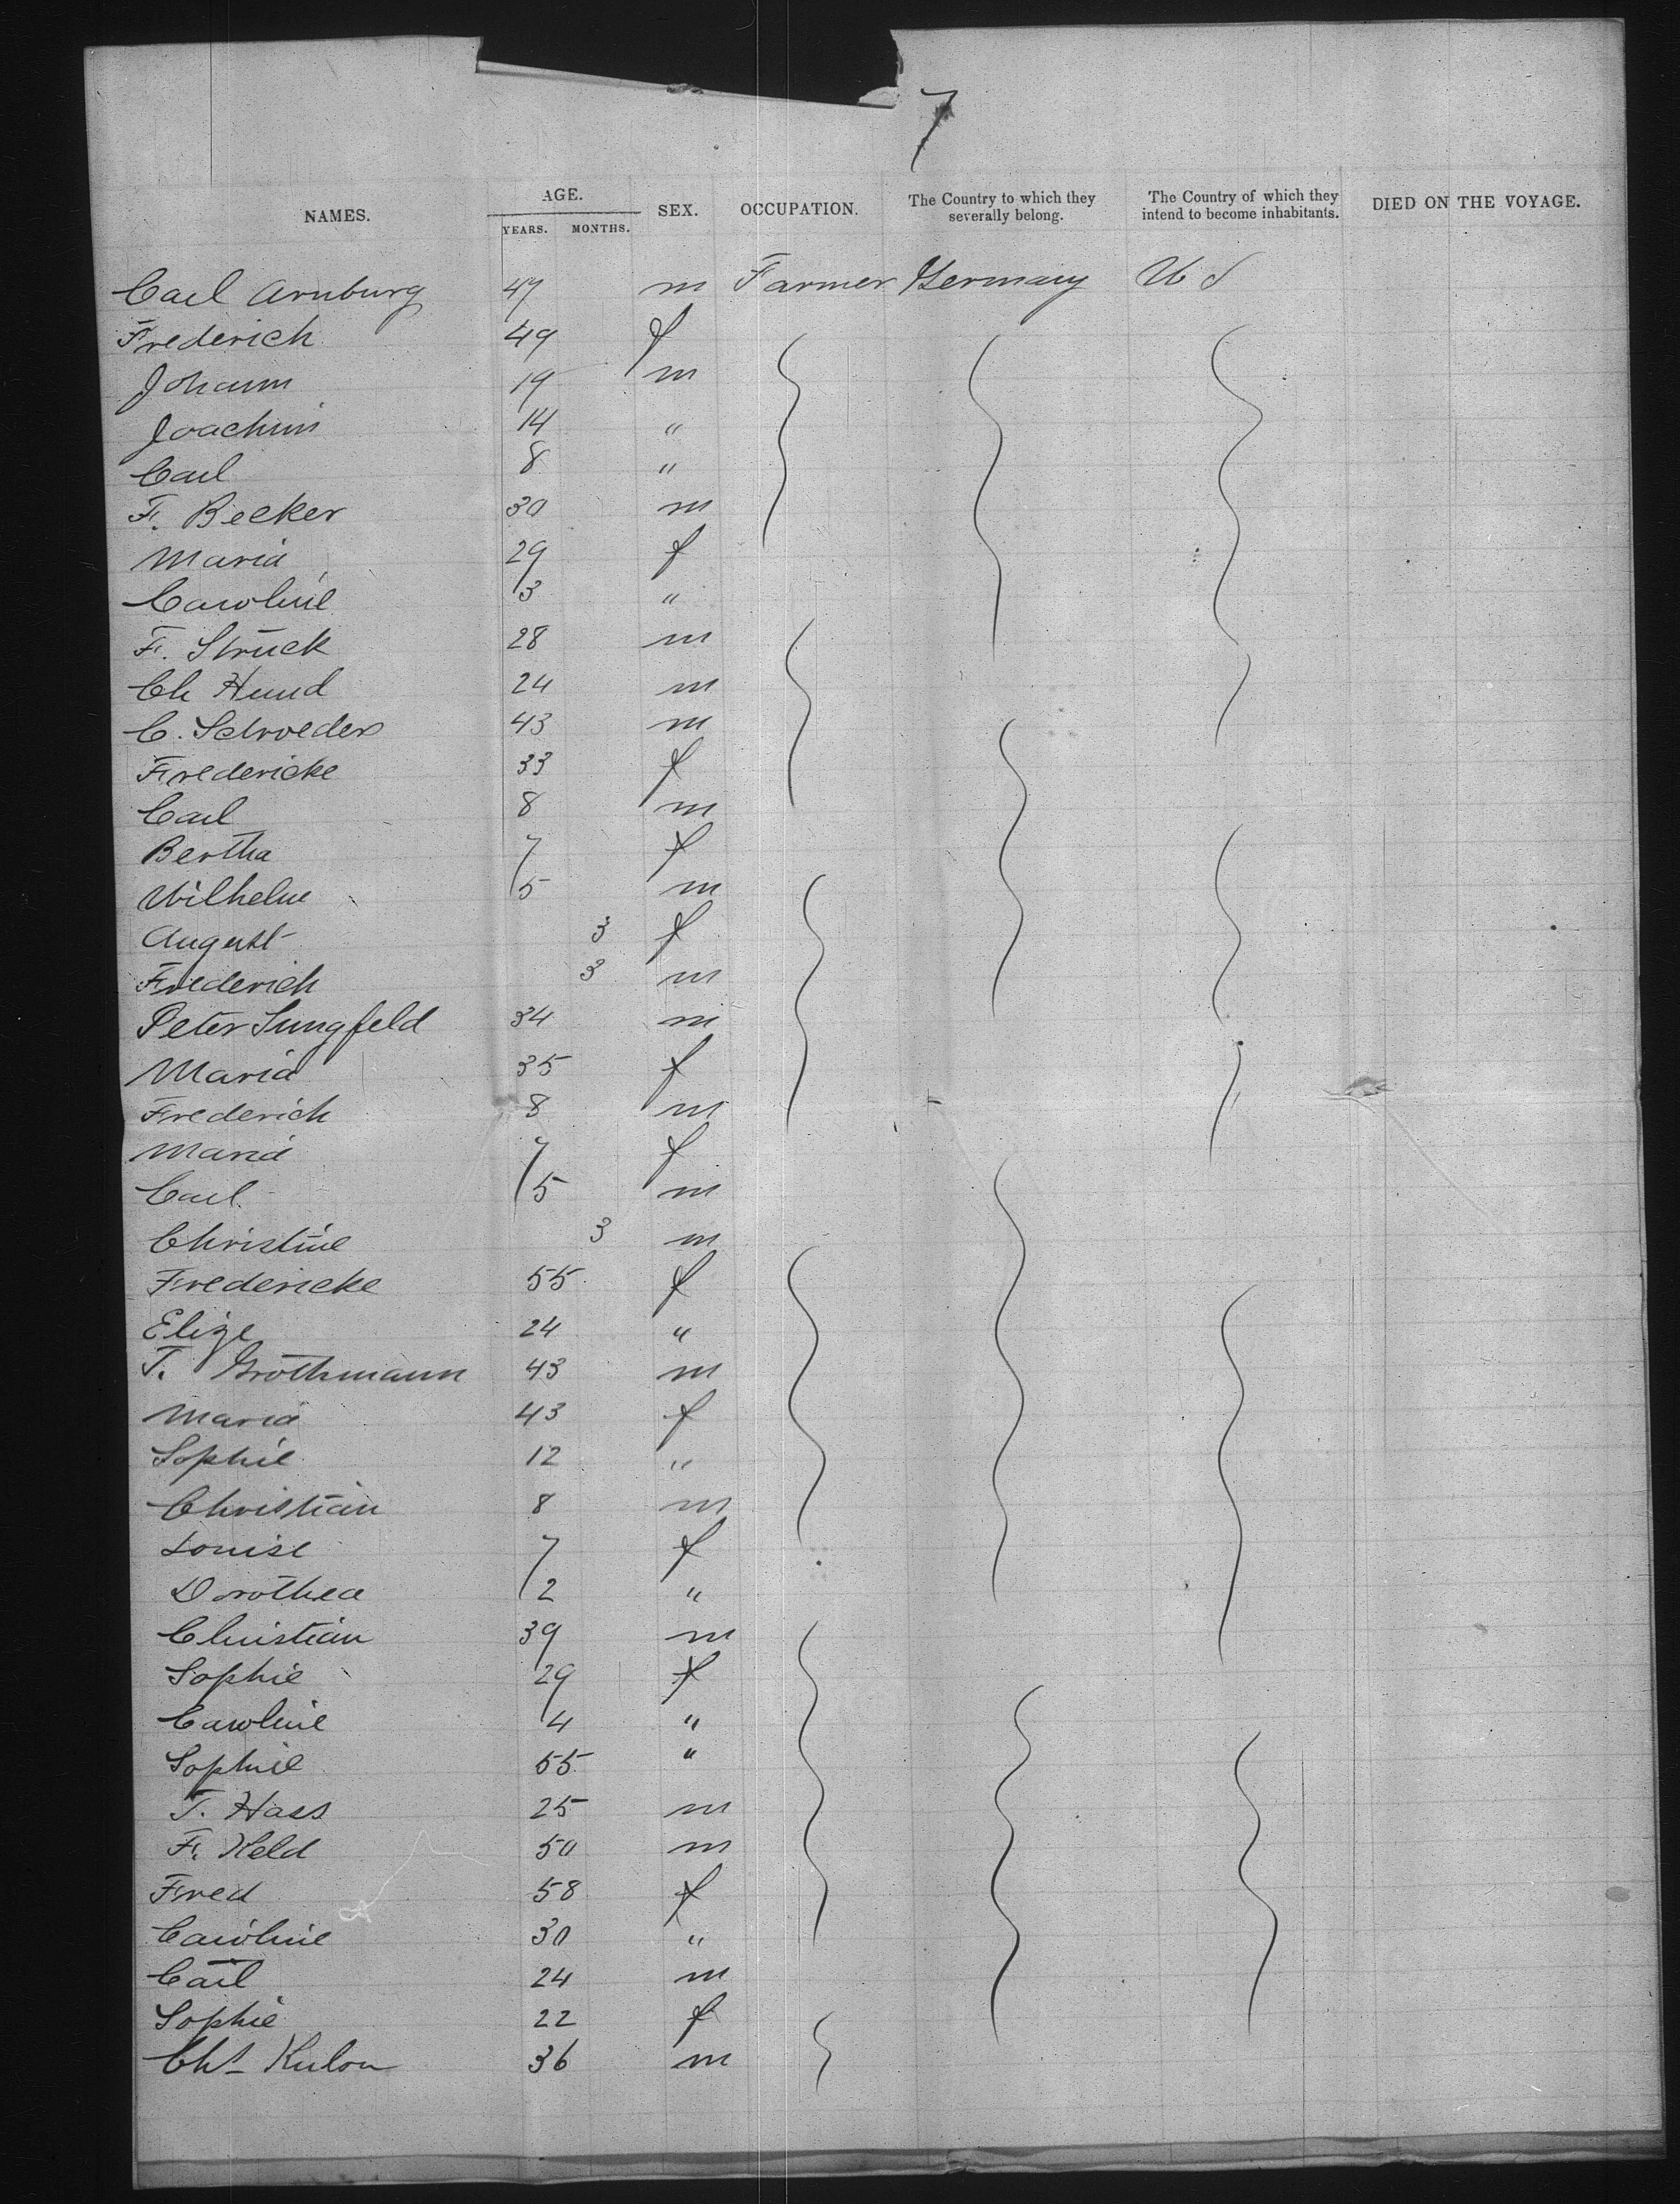 7
NAMES. AGE. YEARS. MONTHS. SEX. OCCUPATION. The Country to which they severally belong. The Country of which they intend to become inhabitants. DIED ON THE VOYAGE.
Carl Arnburg 47 m Farmer Germany U S
Frederich 49 f
Johann 19 m
Joachim 14 "
Carl 8 "
F. Becker 30 m
Maria 29 f
Caroline 3 "
F. Struck 28 m
Ch Hund 24 m
C. Schroeder 43 m
Fredericke 33 f
Carl 8 m
Bertha 7 f
Wilhelm 5 m
August 3 f
Frederich 3 m
Peter Jungfeld 34 m
Maria 35 f
Frederich 8 m
Maria 7 f
Carl 5 m
Christine 3 m
Fredericke 55 f
Elize 24 "
T. Grothmann 43 m
Maria 43 f
Sophie 12 "
Christian 8 m
Louise 7 f
Dorothea 2 "
Christian 39 m
Sophie 29 f
Caroline 4 "
Sophie 55 "
T. Hass 25 m
F. Held 50 m
Fred 58 f
Caroline 30 "
Carl 24 m
Sophie 22 f
Chs Kulow 36 m